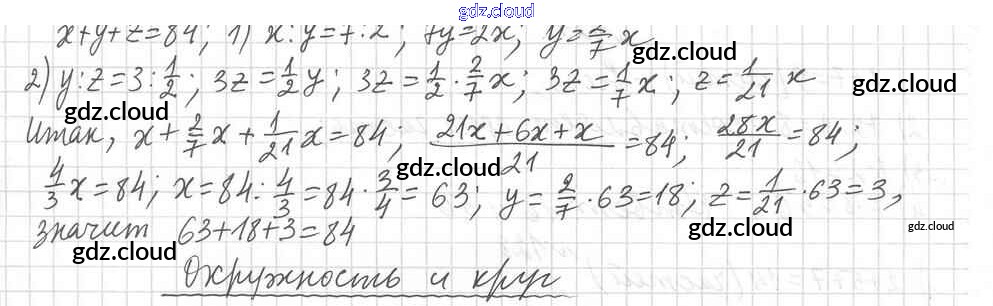 gdz.cloud
x+y+z=84; 1) x:y=7:2; 7y=2x; y=2/7 x
gdz.cloud
2) y:z=3:1/2; 3z=1/2 y; 3z=1/2·2/7 x; 3z=1/7 x; z=1/21 x
gdz.cloud gdz.cloud gdz.cloud
Итак, x+2/7 x+1/21 x=84; (21x+6x+x)/21=84; 28x/21=84;
gdz.cloud
4/3 x=84; x=84:4/3=84·3/4=63; y=2/7·63=18; z=1/21·63=3,
gdz.cloud gdz.cloud
значит 63+18+3=84
gdz.cloud gdz.cloud
Окружность и круг
gdz.cloud